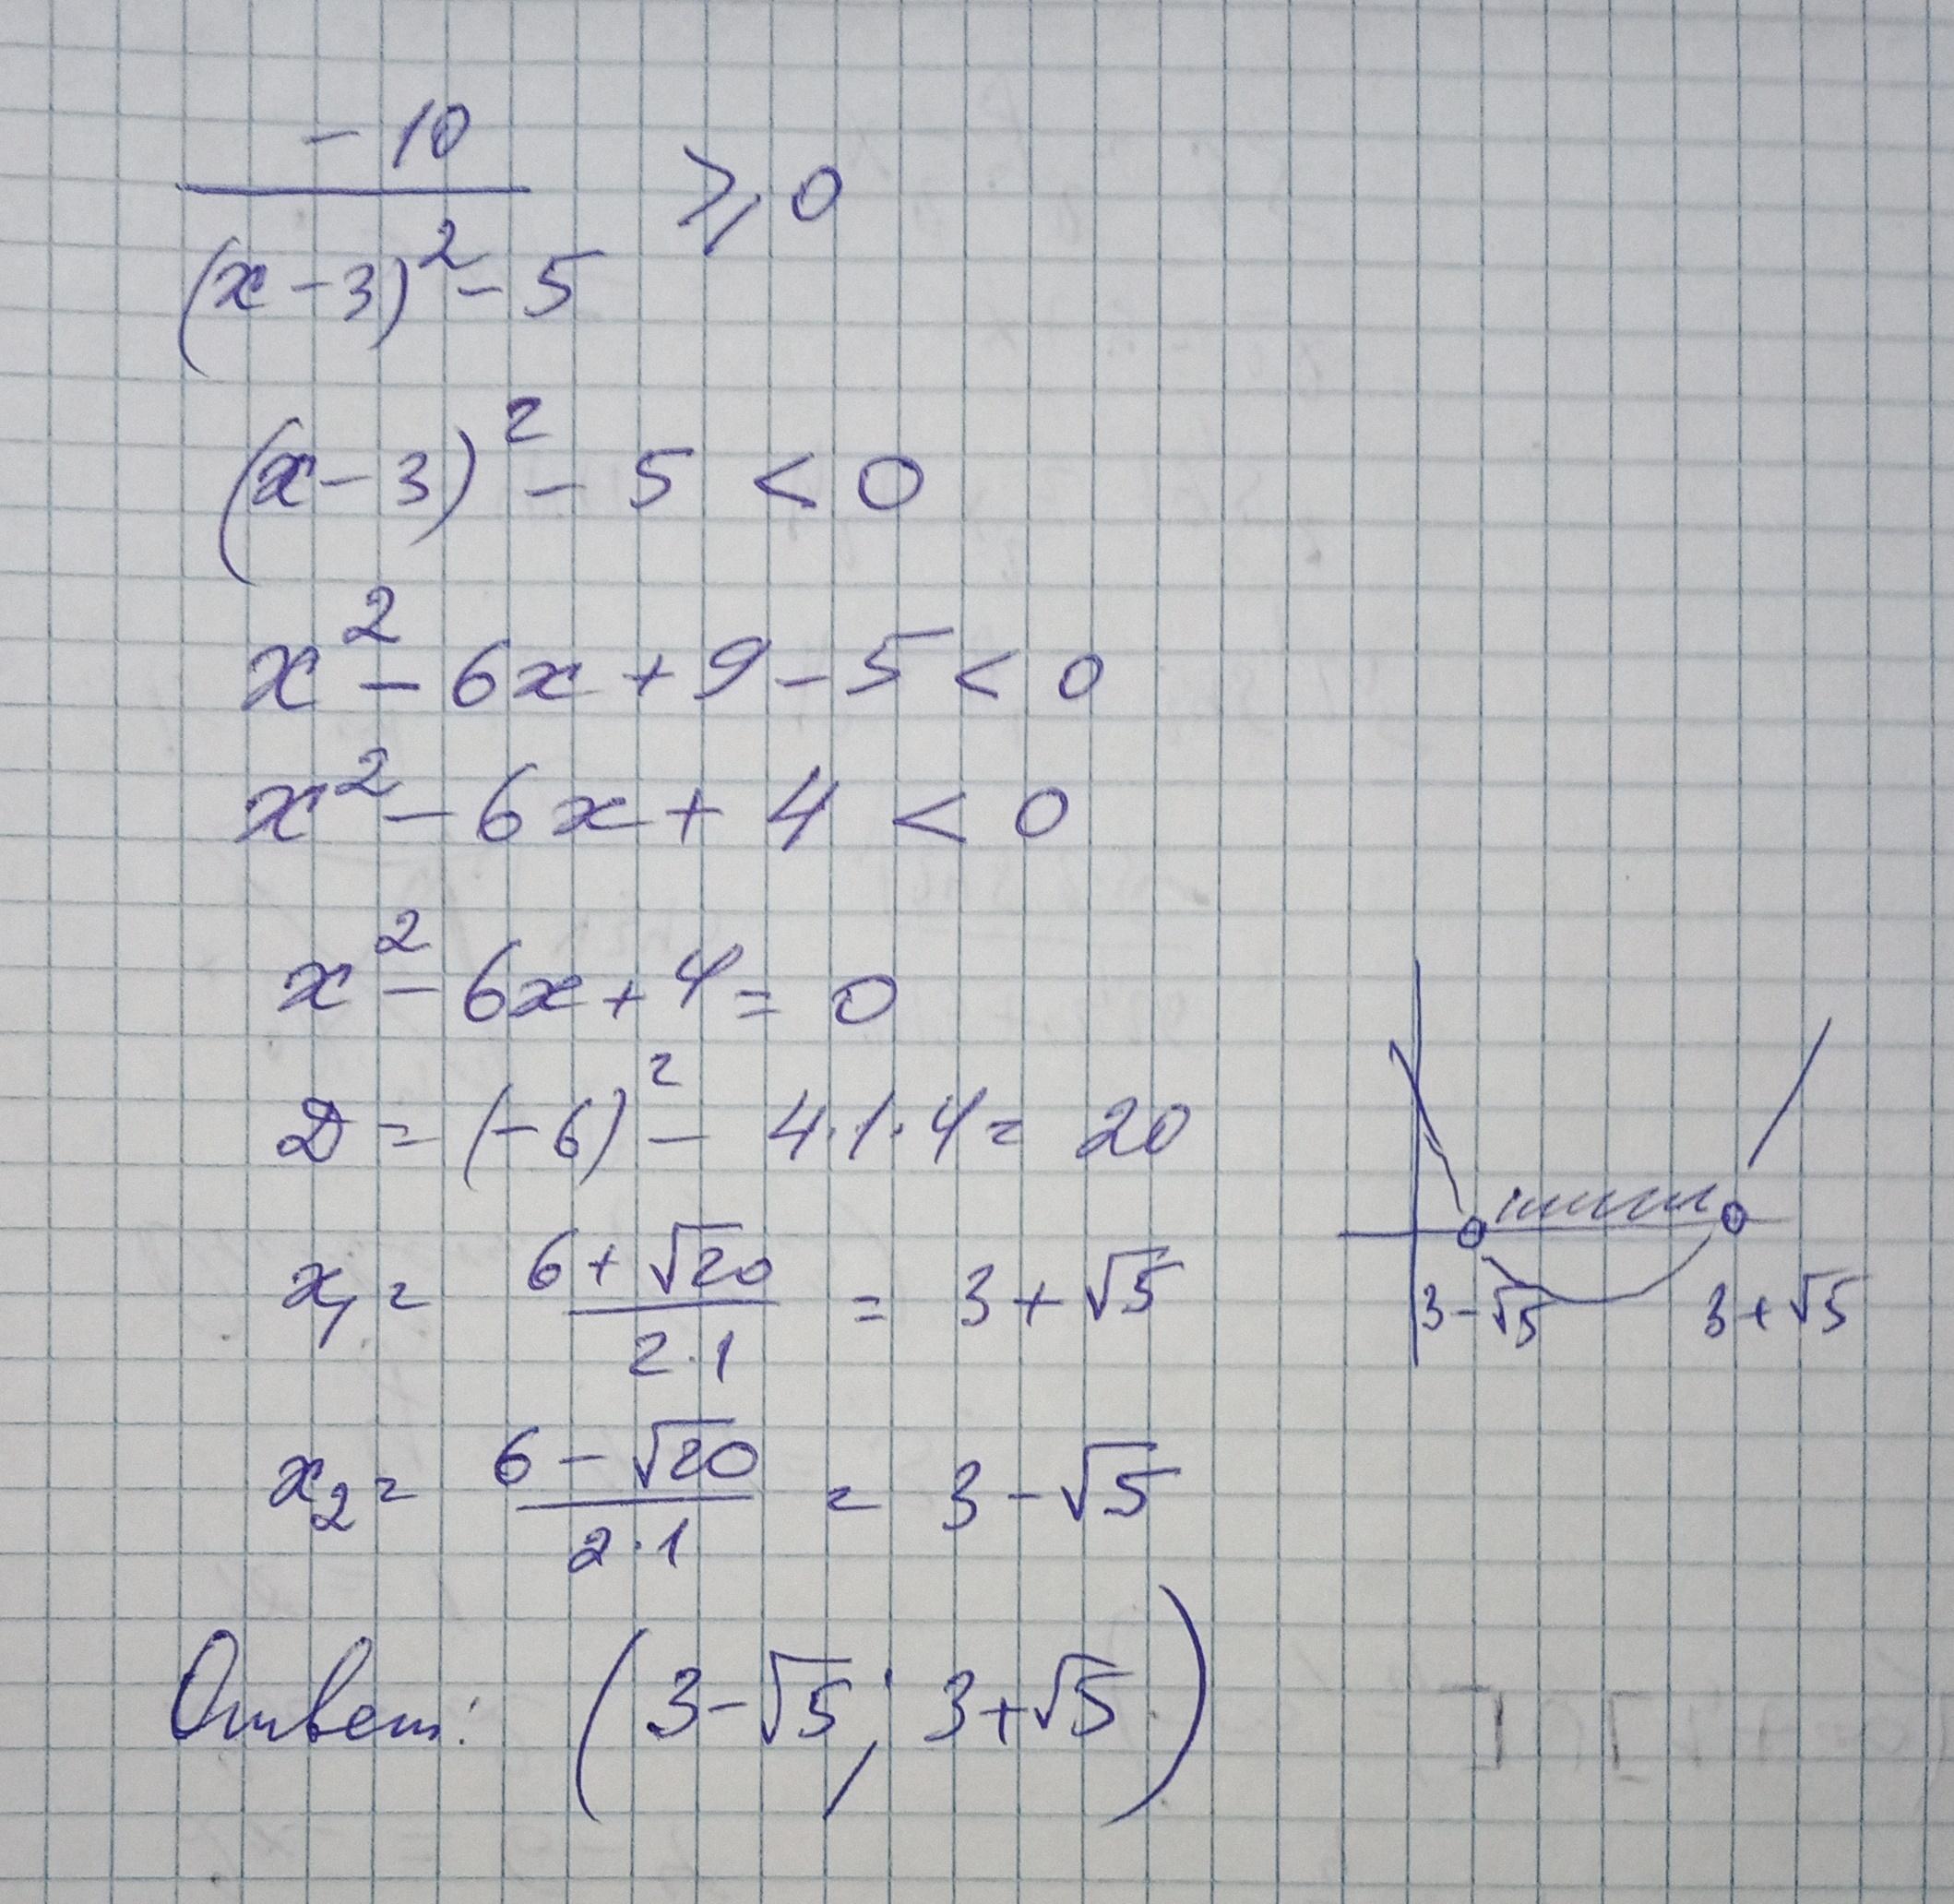 -10 / ((x-3)² - 5) ⩾ 0
(x-3)² - 5 < 0
x² - 6x + 9 - 5 < 0
x² - 6x + 4 < 0
x² - 6x + 4 = 0
D = (-6)² - 4·1·4 = 20
x₁ = (6 + √20) / (2·1) = 3 + √5
3-√5 3+√5
x₂ = (6 - √20) / (2·1) = 3 - √5
Ответ: (3-√5; 3+√5)